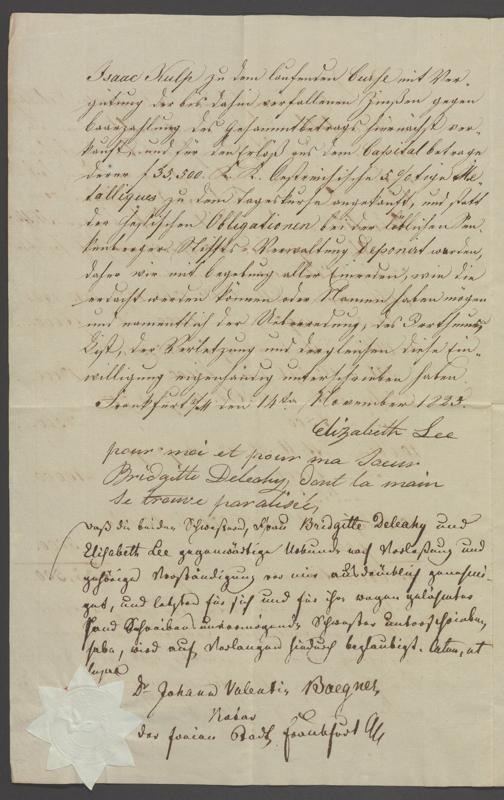 Isaac Kulp zu dem laufenden Curse mit Ver-
gütung der bis dahin verfallenen Zinßen gegen
baarzahlung des Gesammtbetrags hiernächst ver-
kauft, und für den Erlöß aus dem Capital betrage
derer f 33,500. K. K. Oestreichische Me-
talliques zu dem Tagescurse angekauft, und statt
der Obligationen bei der löblichen Sen-
kenbergs Stiffts-Verwaltung Deponirt werden,
daher wir mit begebung aller Einreden, wie die
erdacht werden können oder Namen haben mögen
und namentlich der Ueberredung, des Irrthums,
List, der Verletzung und dergleichen diese Ein-
willigung eigenhändig unterschrieben haben
Frankfurt a/M den 14ten November 1823.
Elizabeth Lee
pour moi et pour ma Soeur
Bridgitte Deleahy, dont la main
se trouve paralisée,
Daß die beiden Schwestern, Frau Bridgitte Deleahy und
Elisabeth Lee gegenwärtige Urkunde nach Vorlesung und
gehörige Verständigung vor mir ausdrücklich genehmi-
get, und letztere für sich und für ihre wegen gelähmter
Hand Schreibens unvermögende Schwester unterschrieben
habe, wird auf Verlangen hiedurch beglaubigt. Actum, ut
supra
Dr Johann Valentin Baegner,
Notar
der freien Stadt Frankfurt a/M